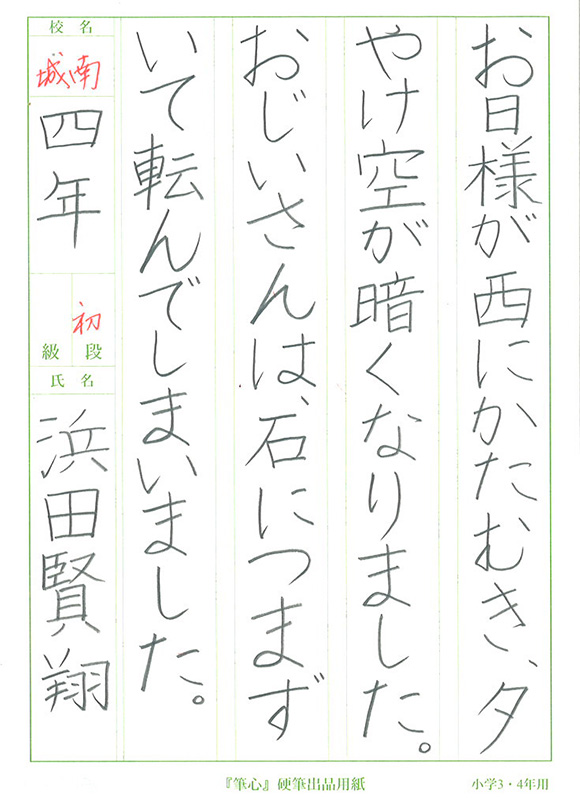 お日様が西にかたむき、夕
やけ空が暗くなりました。
おじいさんは、石につまず
いて転んでしまいました。
校名
城南
四年
初
級段
氏名
浜田賢翔
『筆心』硬筆出品用紙
小学3・4年用